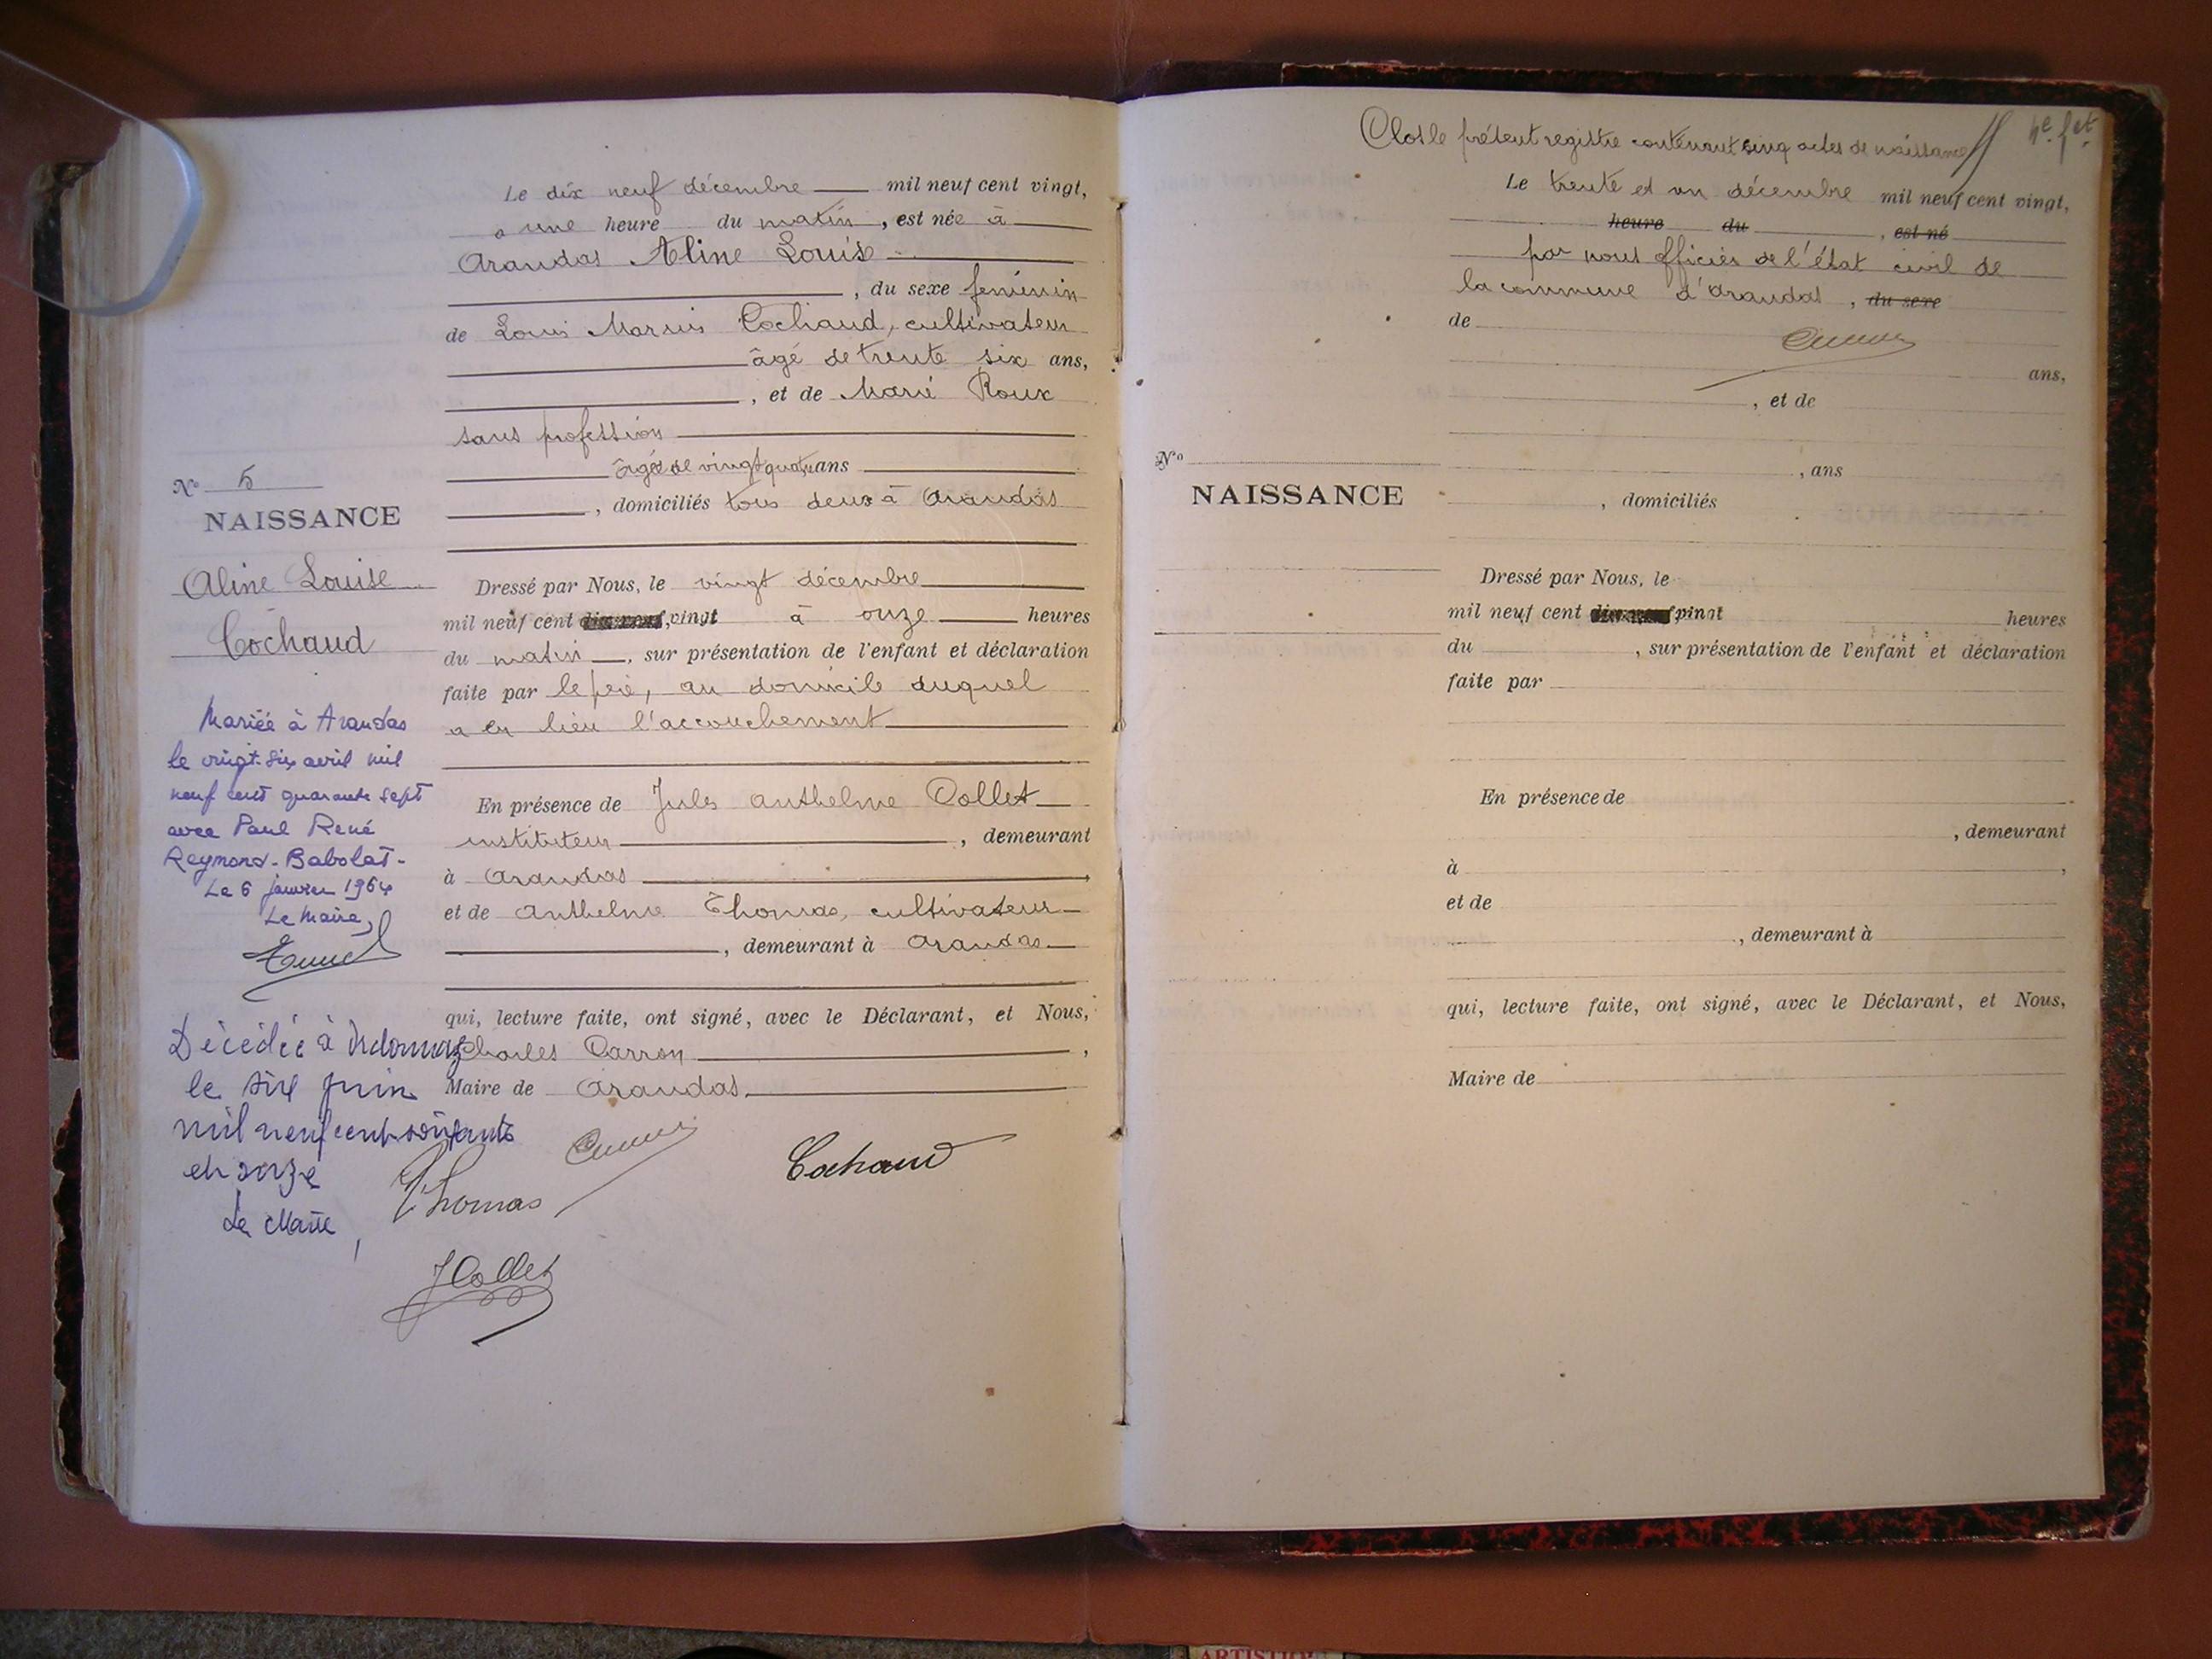 Le dix neuf décembre mil neuf cent vingt,
a une heure du matin, est née à
Arandas Aline Louise
, du sexe féminin
de Louis Marius Cochaud, cultivateur
âgé de trente six ans,
, et de Marie Roux
sans profession
âgée de vingt quatre ans
, domiciliés tous deux à Arandas
N° 5
NAISSANCE
Aline Louise
Cochaud
Dressé par Nous, le vingt décembre
mil neuf cent dix-neuf, vingt à onze heures
du matin, sur présentation de l'enfant et déclaration
faite par le père, au domicile duquel
a eu lieu l'accouchement
En présence de Jules Anthelme Collet
instituteur, demeurant
à Arandas,
et de Anthelme Thomas, cultivateur
, demeurant à Arandas
qui, lecture faite, ont signé, avec le Déclarant, et Nous,
Charles Carron,
Maire de Arandas.
Mariée à Arandas
le vingt-six avril mil
neuf cent quarante sept
avec Paul René
Reymond-Babolat-
Le 6 janvier 1964
Le Maire,
Décédée à
le six juin
mil neuf cent soixante
et onze
Le Maire,
Thomas
Cochaud
JCollet
Clos le présent registre contenant cinq actes de naissance
Le trente et un décembre mil neuf cent vingt,
heure du, est né
par nous officier de l'état civil de
la commune d'Arandas, du sexe
de
ans,
, et de
, ans
, domiciliés
N°
NAISSANCE
Dressé par Nous, le
mil neuf cent dix-neuf vingt heures
du, sur présentation de l'enfant et déclaration
faite par
En présence de
, demeurant
à,
et de
, demeurant à
qui, lecture faite, ont signé, avec le Déclarant, et Nous,
Maire de